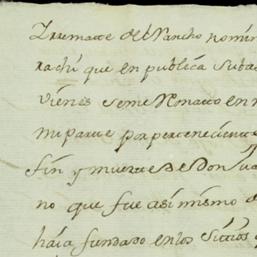 Y remate del Rancho nomin
rachi que en publica Suba
vienes se me Remato en
mi parte por perteneciente
fin y muerte de Don Jua
no que fue asi mismo
havia fundado en los Sitios